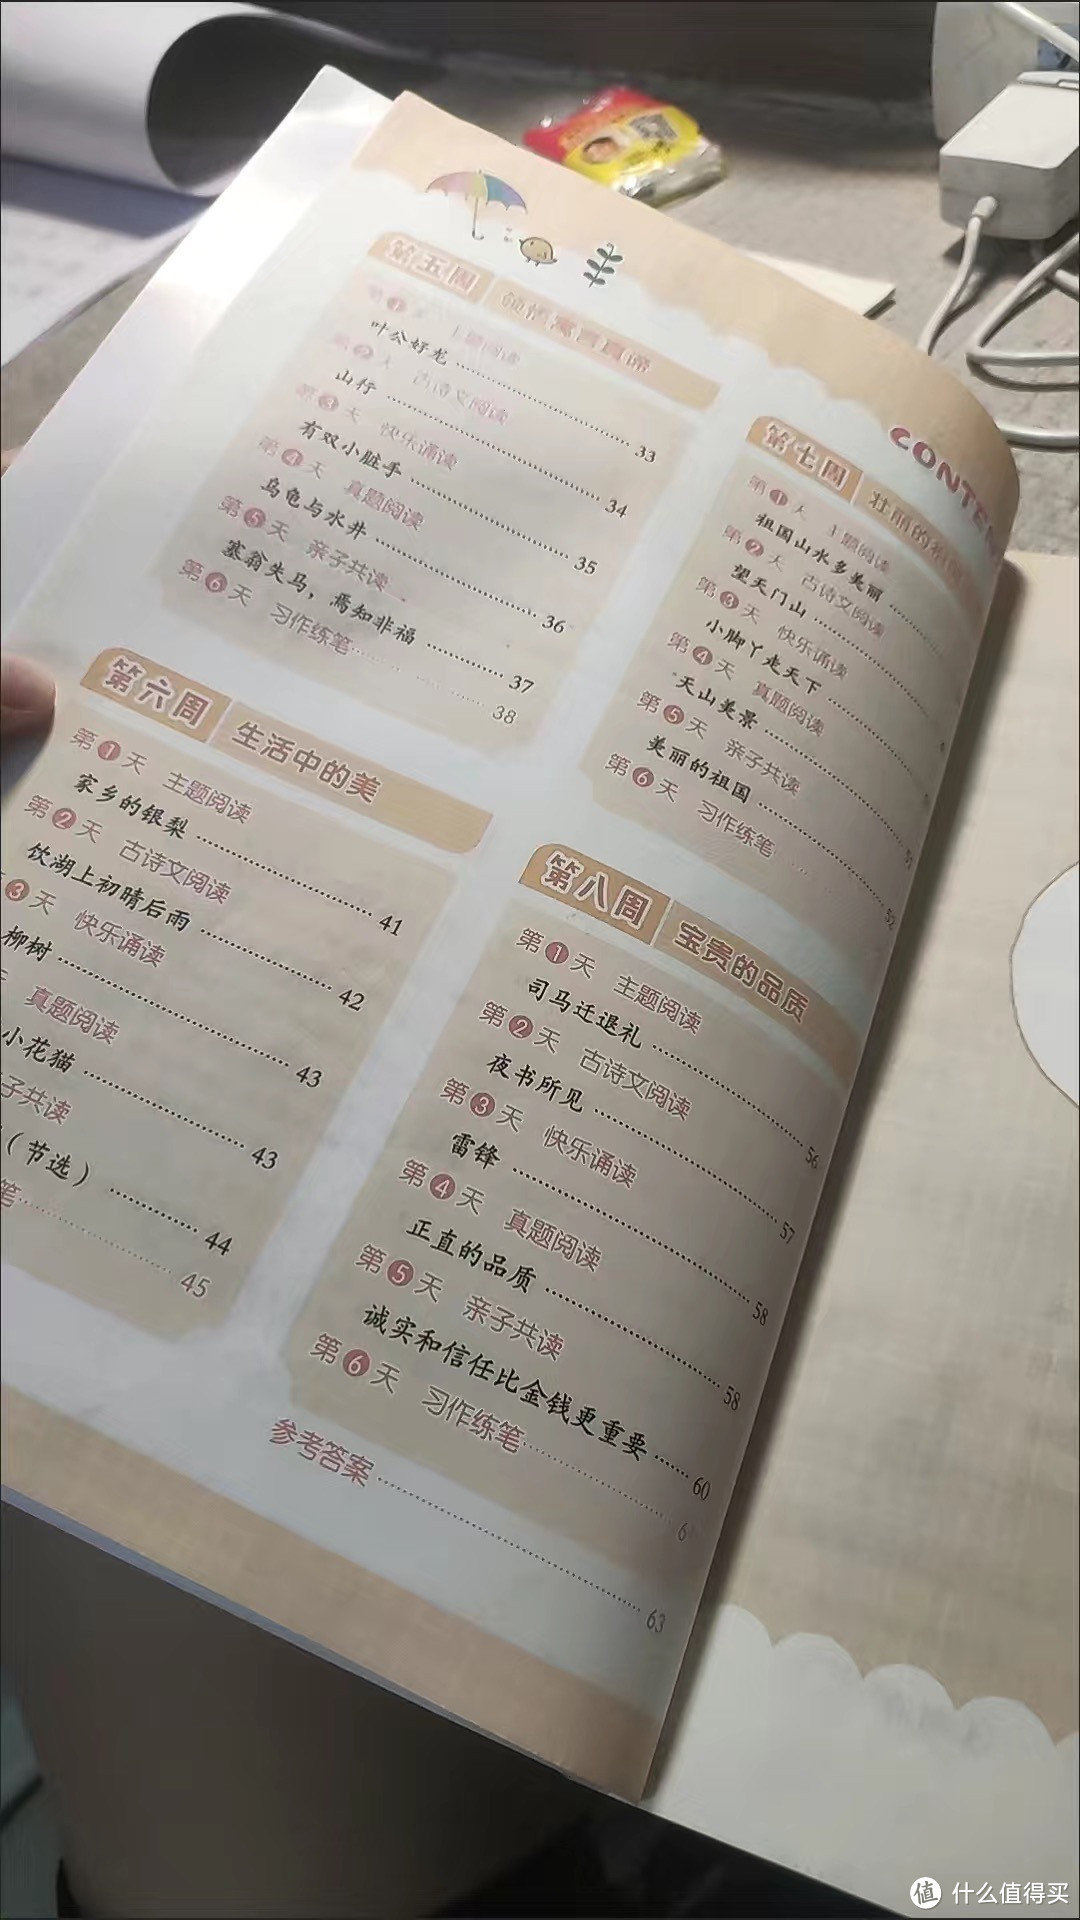 CONTEN
第五周
第1天 主题阅读
叶公好龙 33
第2天 古诗文阅读
山行 34
第3天 快乐诵读
有双小脏手 35
第4天 真题阅读
乌龟与水井 36
第5天 亲子共读
塞翁失马，焉知非福 37
第6天 习作练笔 38
第六周 生活中的美
第1天 主题阅读
家乡的银梨 41
第2天 古诗文阅读
饮湖上初晴后雨 42
3天 快乐诵读
柳树 43
真题阅读
小花猫 43
子共读
（节选） 44
笔 45
第七周 壮丽的
第1天 主题阅读
祖国山水多美丽
第2天 古诗文阅读
望天门山
第3天 快乐诵读
小脚丫走天下
第4天 真题阅读
天山美景
第5天 亲子共读
美丽的祖国
第6天 习作练笔 52
第八周 宝贵的品质
第1天 主题阅读
司马迁退礼 56
第2天 古诗文阅读
夜书所见 57
第3天 快乐诵读
雷锋 58
第4天 真题阅读
正直的品质 58
第5天 亲子共读
诚实和信任比金钱更重要 60
第6天 习作练笔 6
参考答案 63
值 什么值得买